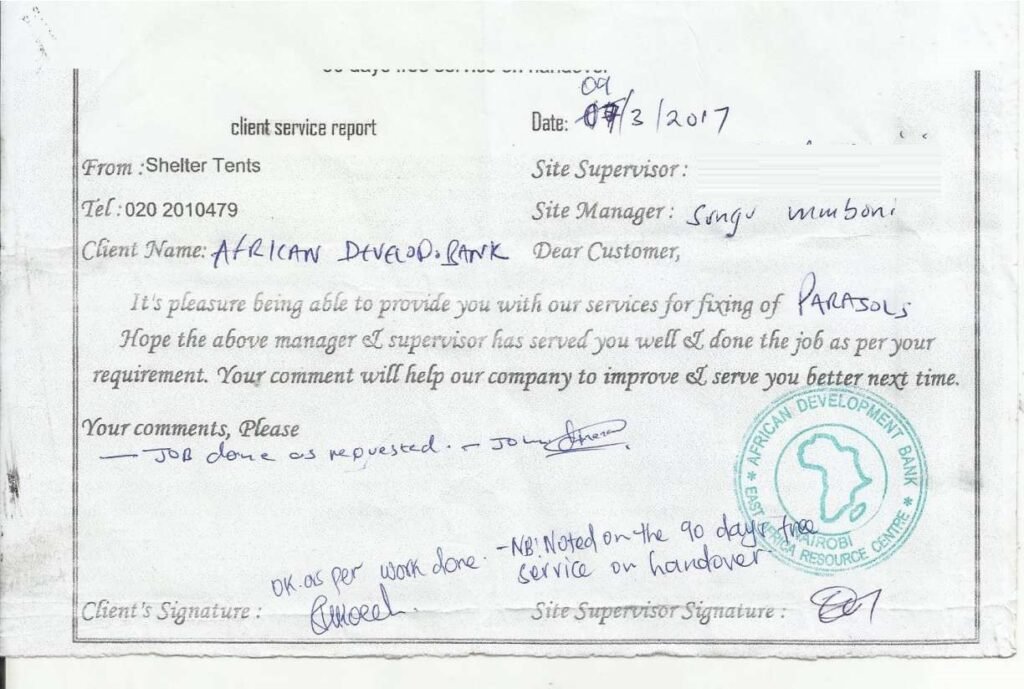 90 days free service on handover
09
client service report
Date: 07/3/2017
From : Shelter Tents
Site Supervisor :
Tel : 020 2010479
Site Manager : Songu mmboni
Client Name: AFRICAN DEVELOP. BANK
Dear Customer,
It's pleasure being able to provide you with our services for fixing of PARASOLS
Hope the above manager & supervisor has served you well & done the job as per your
requirement. Your comment will help our company to improve & serve you better next time.
Your comments, Please
— JOB done as requested. – JOHN
* AFRICAN DEVELOPMENT BANK *
EAST AFRICA RESOURCE CENTRE
NAIROBI
OK as per work done. - NB: Noted on the 90 days free
service on handover
Client's Signature :
Site Supervisor Signature :